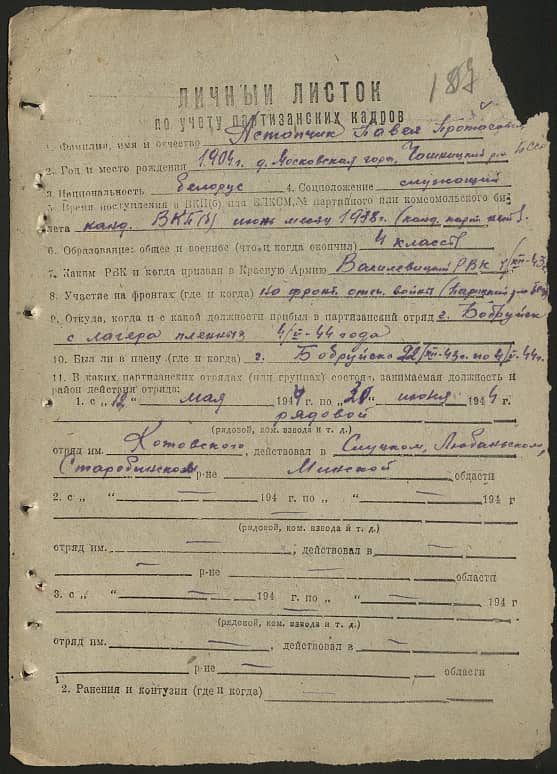 187
ЛИЧНЫЙ ЛИСТОК
по учету партизанских кадров
1. Фамилия, имя и отчество Астапчик Павел
2. Год и место рождения 1904г. д. Московская гора, Чашницкий р-н БССР
3. Национальность белорус 4. Соцположение служащий
5. Время поступления в ВКП(б) или ВЛКСМ, № партийного или комсомольского би-
лета канд. ВКП(б) июнь месяц 1938г. (канд.
6. Образование: общее и военное (что и когда окончил) 4 класса
7. Каким РВК и когда призван в Красную Армию Василевицкий РВК
8. Участие на фронтах (где и когда) на фронт. отеч. войны
9. Откуда, когда и с какой должности прибыл в партизанский отряд г. Бобруйск
с лагера пленных 4/V-44 года
10. Был ли в плену (где и когда) г. Бобруйск 22/XII-43г. по 4/V-44г.
11. В каких партизанских отрядах (или группах) состоял, занимаемая должность и
район действия отряда:
1. с „12“ мая 1944 г. по „30“ июня 1944 г.
рядовой
(рядовой, ком. взвода и т. д.)
отряд им. Котовского, действовал в Слуцком, Любаньском,
Старобинском р-не Минской области
2. с „ “ — 194 г. по „ “ — 194 г
(рядовой, ком. взвода и т. д.)
отряд им. — , действовал в —
— р-не — области
3. с „ “ — 194 г. по „ “ — 194 г
(рядовой, ком. взвода и т. д.)
отряд им. — , действовал в —
р-не — области
2. Ранения и контузии (где и когда) —